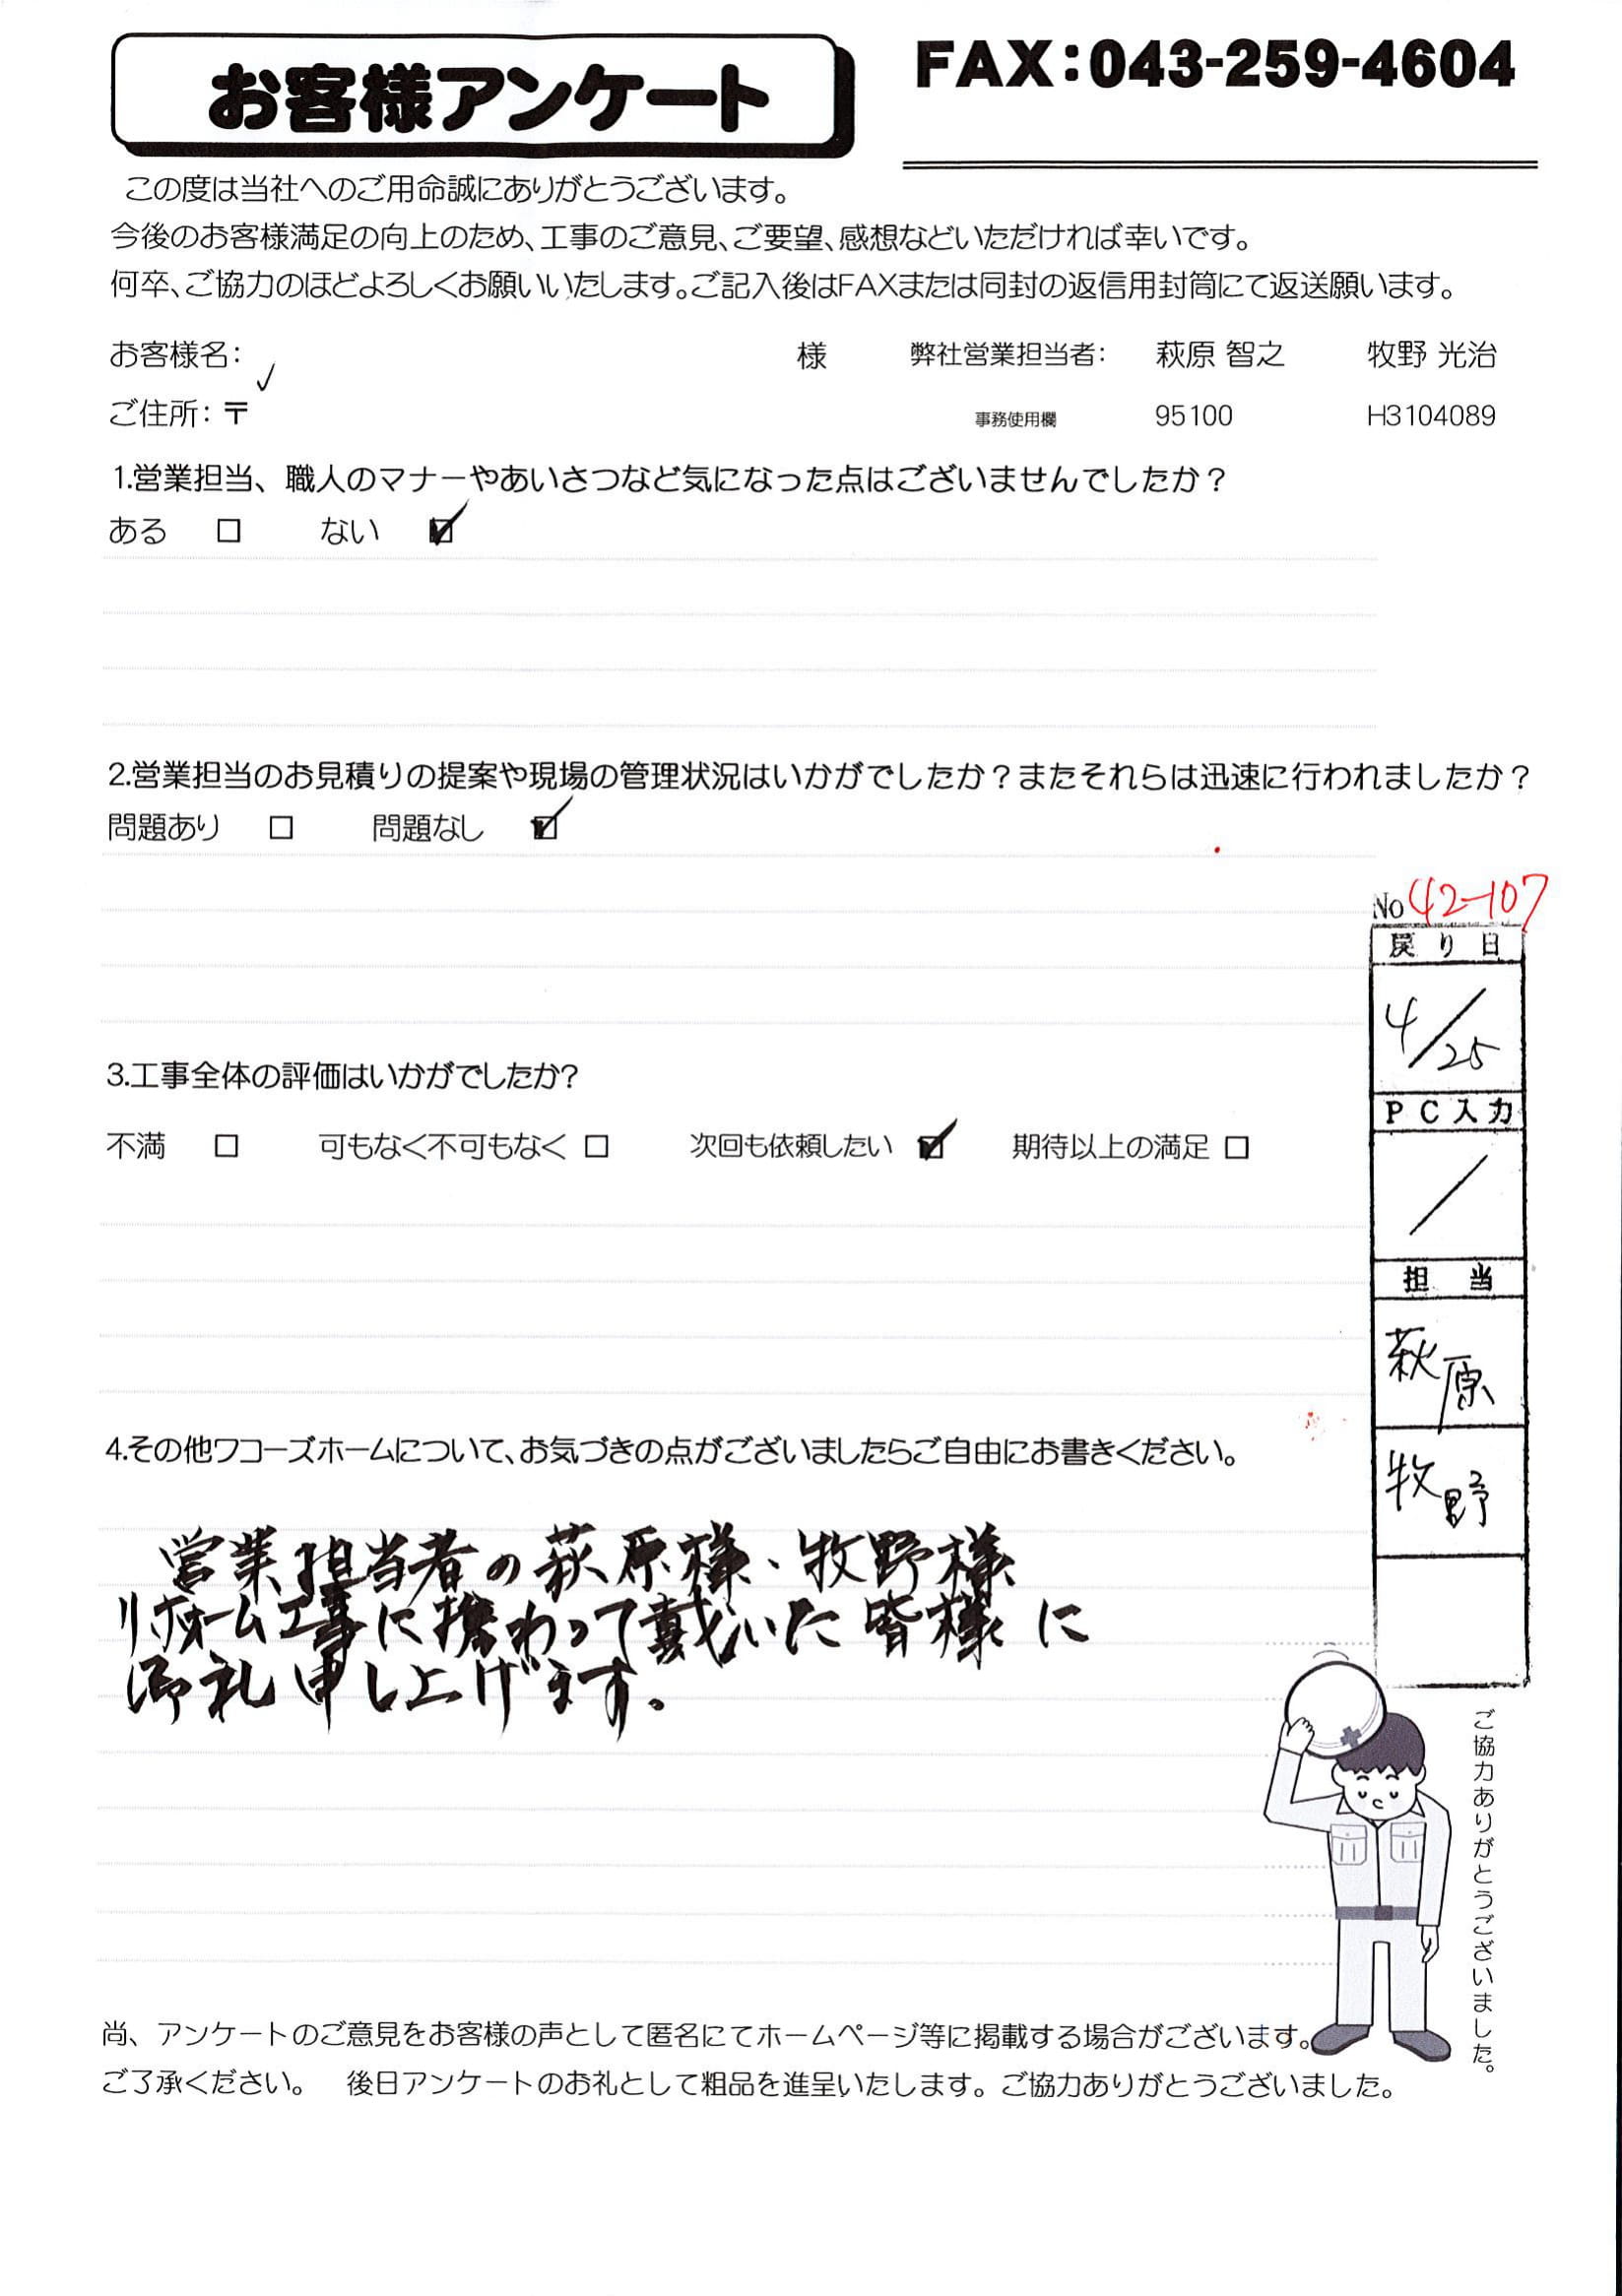 お客様アンケート
FAX:043-259-4604
この度は当社へのご用命誠にありがとうございます。
今後のお客様満足の向上のため、工事のご意見、ご要望、感想などいただければ幸いです。
何卒、ご協力のほどよろしくお願いいたします。ご記入後はFAXまたは同封の返信用封筒にて返送願います。
お客様名: 様 弊社営業担当者: 萩原 智之 牧野 光治
ご住所: 〒 事務使用欄 95100 H3104089
1.営業担当、職人のマナーやあいさつなど気になった点はございませんでしたか？
ある □ ない ☑
2.営業担当のお見積りの提案や現場の管理状況はいかがでしたか？またそれらは迅速に行われましたか？
問題あり □ 問題なし ☑
No 42-107
戻り日
4/25
3.工事全体の評価はいかがでしたか?
PC入力
/
不満 □ 可もなく不可もなく □ 次回も依頼したい ☑ 期待以上の満足 □
担当
萩原
牧野
4.その他ワコーズホームについて、お気づきの点がございましたらご自由にお書きください。
営業担当者の萩原様、牧野様
リホーム工事に携わって戴いた皆様に
御礼申し上げます。
ご協力ありがとうございました。
尚、アンケートのご意見をお客様の声として匿名にてホームページ等に掲載する場合がございます。
ご了承ください。 後日アンケートのお礼として粗品を進呈いたします。ご協力ありがとうございました。